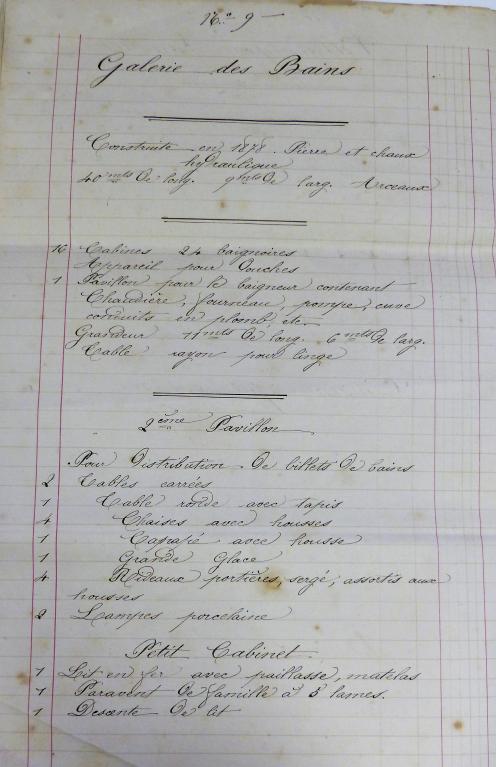 No 9
Galerie des Bains
Construite en 1878. Pierre et chaux
hydraulique
40 mts de long. 9 mts de larg. Arceaux
16 Cabines 24 baignoires
Appareil pour douches
1 Pavillon pour le baigneur contenant
Chaudière, fourneau, pompe, cuve
conduits en plomb, etc.
Grandeur 11 mts de long. 6 mts de larg.
Table rayon pour linge
2ème Pavillon
Pour distribution de billets de bains
2 Tables carrées
1 Table ronde avec tapis
4 Chaises avec housses
1 Canapé avec housse
1 Grande Glace
4 Rideaux portières, serge, assortis aux
housses
2 Lampes porcelaine
Petit Cabinet
1 Lit en fer avec paillasse, matelas
1 Paravent de famille à 5 lames.
1 Descente de lit